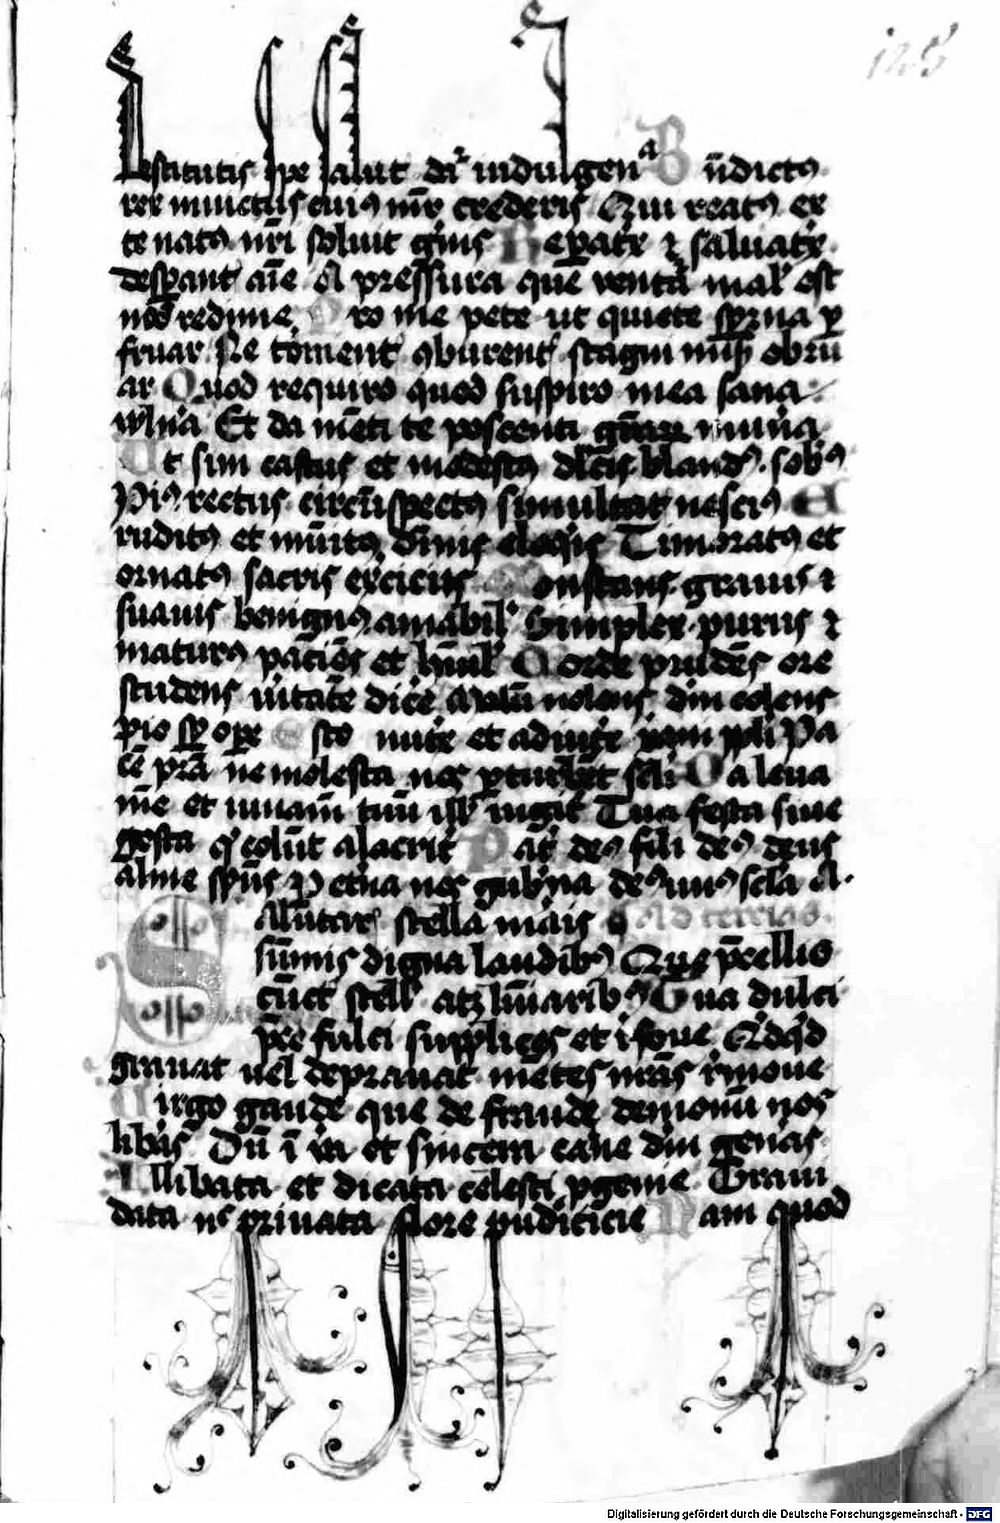 125
restitutis spe salut datur indulgena Bndictus
rex inuictus cuius mr crederis Qui reatus ex
te natus nri soluit gnis Reparatrix et saluatrix
despant aie A pressura que ventura mal est
nos redime Pro me pete ut quiete spzna p
fruar Ne torment cburent stagni obru
ar Quod requiro quod suspiro mea sana
wlna Et da menti te poscenti gram muna
Ut sim castus et modestus dlcis blandus sobus
Pius rectus circumspectus simultat nescius E
ruditus et munitus diuinis eloqis Timoratus et
ornatus sacris exciciis Constans grauis et
suauis benignus amabil Simplex purus et
maturus paciens et humil Corde prudens ore
studens uitatem dice Malum nolens dm colens
Pio sp ope Esto nutrix et adiutrix populi Pa
cem pra ne molesta nos pturbet scli O a leua
me et iuuam tuu rugit Tua festa siue
gesta qui colunt alacrit Pat deus fili deus deus
alme spus P etna nos gubna deus unus scla A.
Salutaris stella maris Ad tercias.
summis digna laudibus Que precellis
cunct stell atque luminaribus Tua dulci
pre fulci supplices et refoue Quidquid
grauat uel deprauat mentes nras remoue
Uirgo gaude que de fraude demonum nos
libas Dum in ua et sincera carne dm genas
Illibata et dicata celesti pgenie Graui
data nec priuata flore pudicicie Nam quod
Digitalisierung gefördert durch die Deutsche Forschungsgemeinschaft - DFG